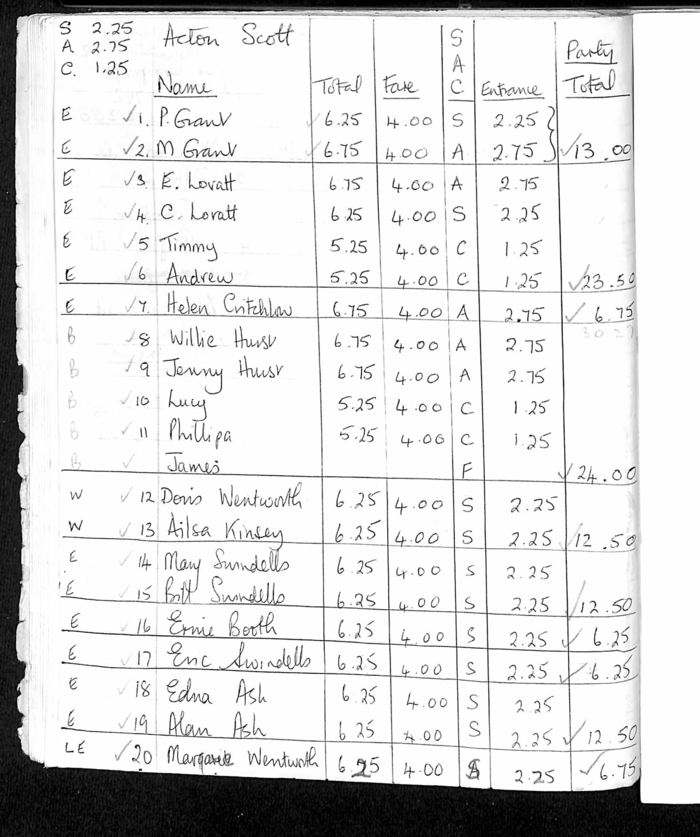 S 2.25 Acton Scott S
A 2.75 A Party
C. 1.25 Name Total Fare C Entrance Total
E ✓ 1. P. Grant 6.25 4.00 S 2.25
E ✓ 2. M Grant 6.75 4.00 A 2.75 ✓ 13.00
E ✓ 3 E. Lovatt 6.75 4.00 A 2.75
E ✓ 4. C. Lovatt 6.25 4.00 S 2.25
E ✓ 5 Timmy 5.25 4.00 C 1.25
E ✓ 6 Andrew 5.25 4.00 C 1.25 ✓ 23.50
E ✓ 7. Helen Critchlow 6.75 4.00 A 2.75 ✓ 6.75
B ✓ 8 Willie Hurst 6.75 4.00 A 2.75
B ✓ 9 Jenny Hurst 6.75 4.00 A 2.75
B ✓ 10 Lucy 5.25 4.00 C 1.25
B ✓ 11 Phillipa 5.25 4.00 C 1.25
B ✓ James F ✓ 24.00
W ✓ 12 Doris Wentworth 6.25 4.00 S 2.25
W ✓ 13 Ailsa Kinsey 6.25 4.00 S 2.25 ✓ 12.50
E ✓ 14 Mary Swindells 6.25 4.00 S 2.25
E ✓ 15 Bill Swindells 6.25 4.00 S 2.25 ✓ 12.50
E ✓ 16 Ernie Booth 6.25 4.00 S 2.25 ✓ 6.25
E ✓ 17 Eric Swindells 6.25 4.00 S 2.25 ✓ 6.25
E ✓ 18 Edna Ash 6.25 4.00 S 2.25
E ✓ 19 Alan Ash 6.25 4.00 S 2.25 ✓ 12.50
LE ✓ 20 Wentworth 6.25 4.00 2.25 ✓ 6.75